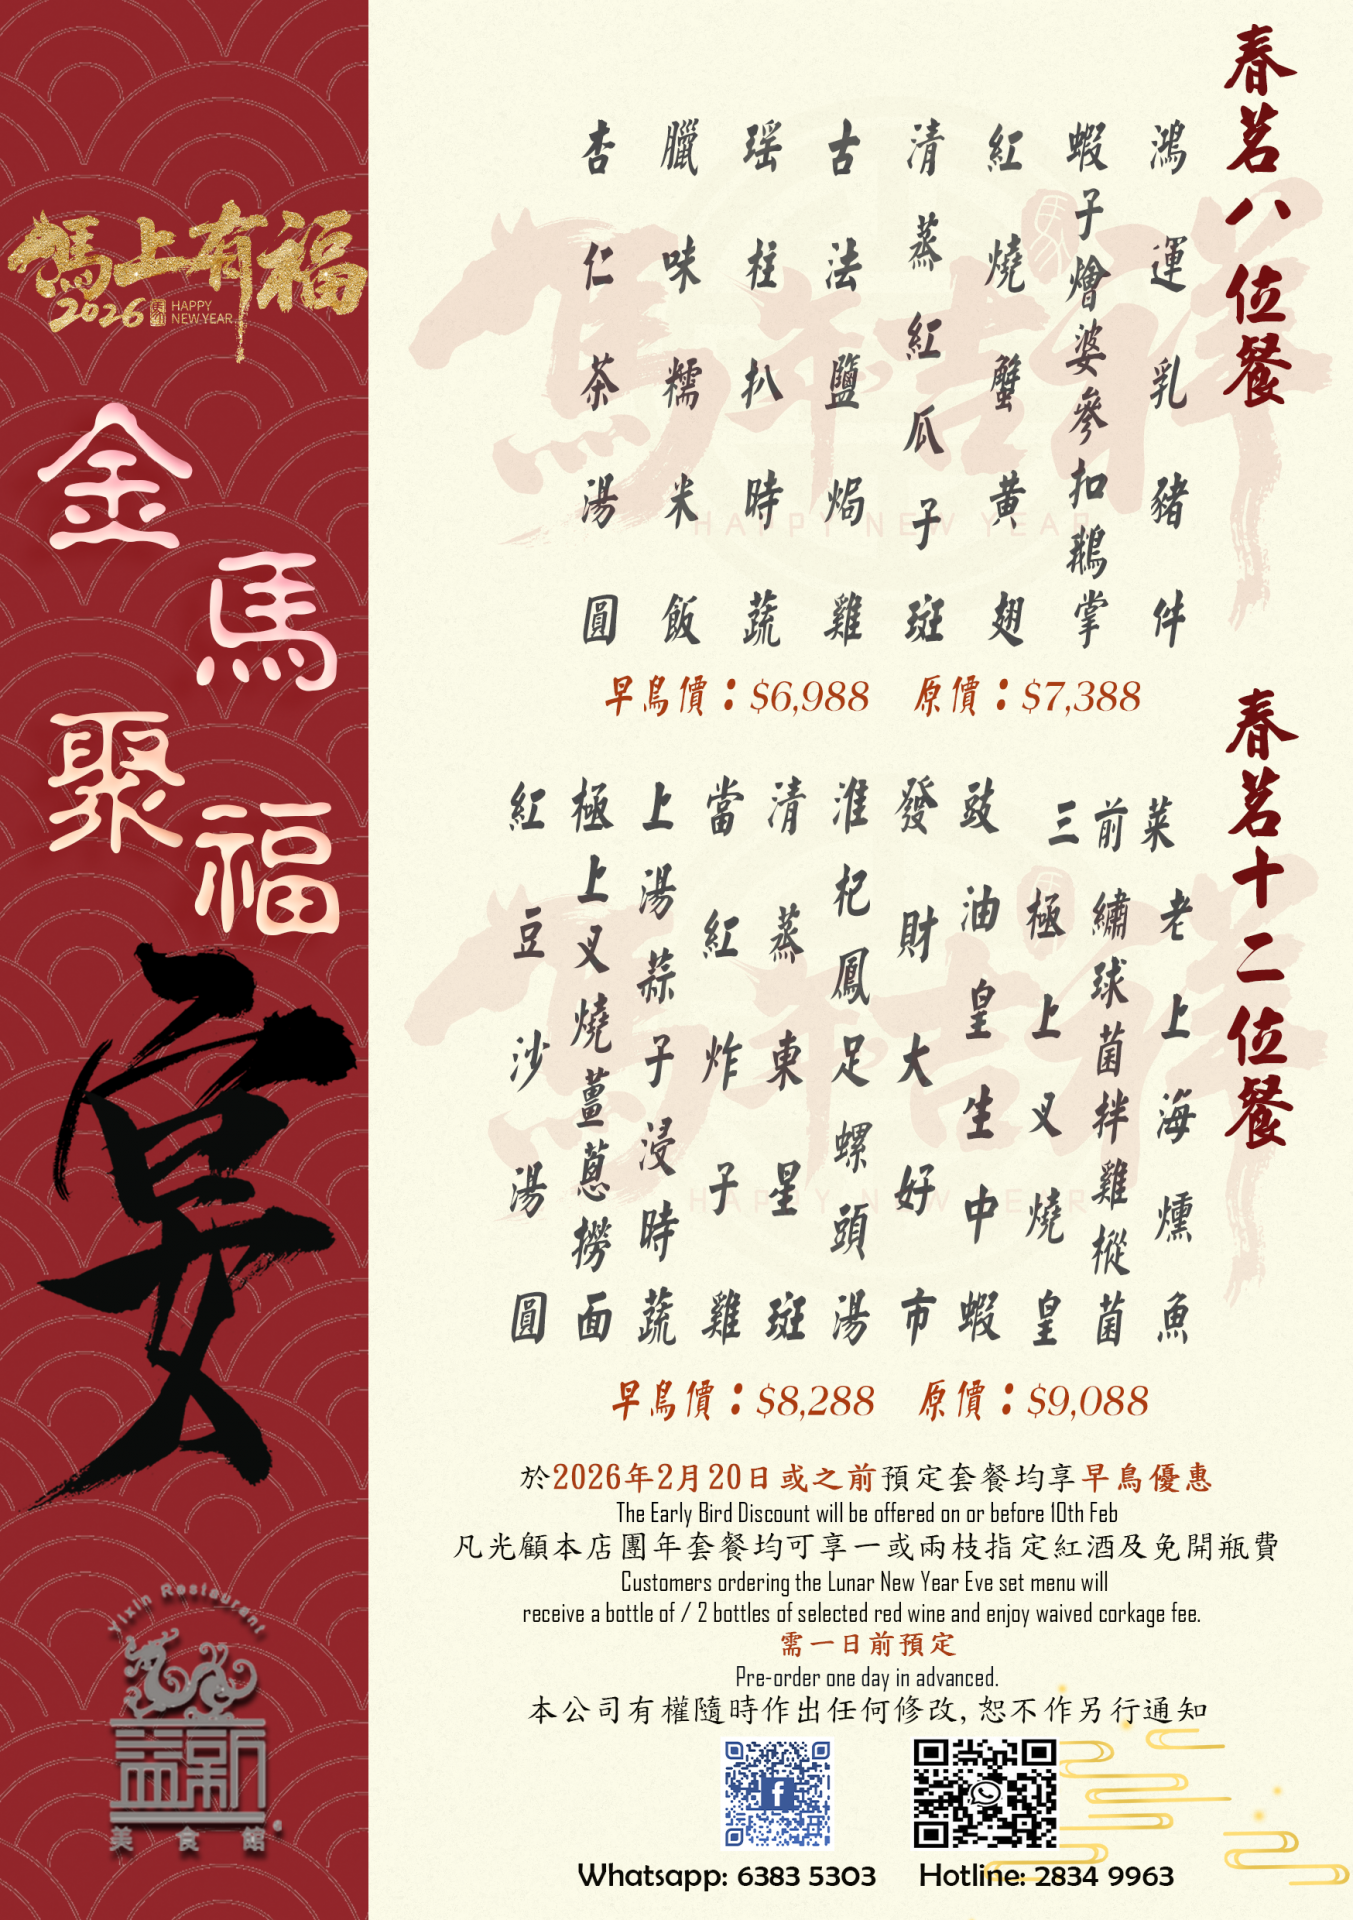 馬上有福
2026 HAPPY NEW YEAR
金馬聚福宴
春茗八位餐
鴻運乳豬件
蝦子燴婆參扣鵝掌
紅燒蟹黃翅
清蒸紅瓜子斑
古法鹽焗雞
瑤柱扒時蔬
臘味糯米飯
杏仁茶湯圓
早鳥價：$6,988 原價：$7,388
馬年吉祥
HAPPY NEW YEAR
春茗十二位餐
三前菜
老上海燻魚
繡球菌拌雞樅菌
極上叉燒皇
豉油皇生中蝦
發財大好市
淮杞鳳足螺頭湯
清蒸東星斑
當紅炸子雞
上湯蒜子浸時蔬
極上叉燒薑蔥撈面
紅豆沙湯圓
馬年吉祥
HAPPY NEW YEAR
早鳥價：$8,288 原價：$9,088
於2026年2月20日或之前預定套餐均享早鳥優惠
The Early Bird Discount will be offered on or before 10th Feb
凡光顧本店團年套餐均可享一或兩枝指定紅酒及免開瓶費
Customers ordering the Lunar New Year Eve set menu will
receive a bottle of / 2 bottles of selected red wine and enjoy waived corkage fee.
需一日前預定
Pre-order one day in advanced.
本公司有權隨時作出任何修改, 恕不作另行通知
Whatsapp: 6383 5303 Hotline: 2834 9963
Yixin Restaurant
益新
美食館